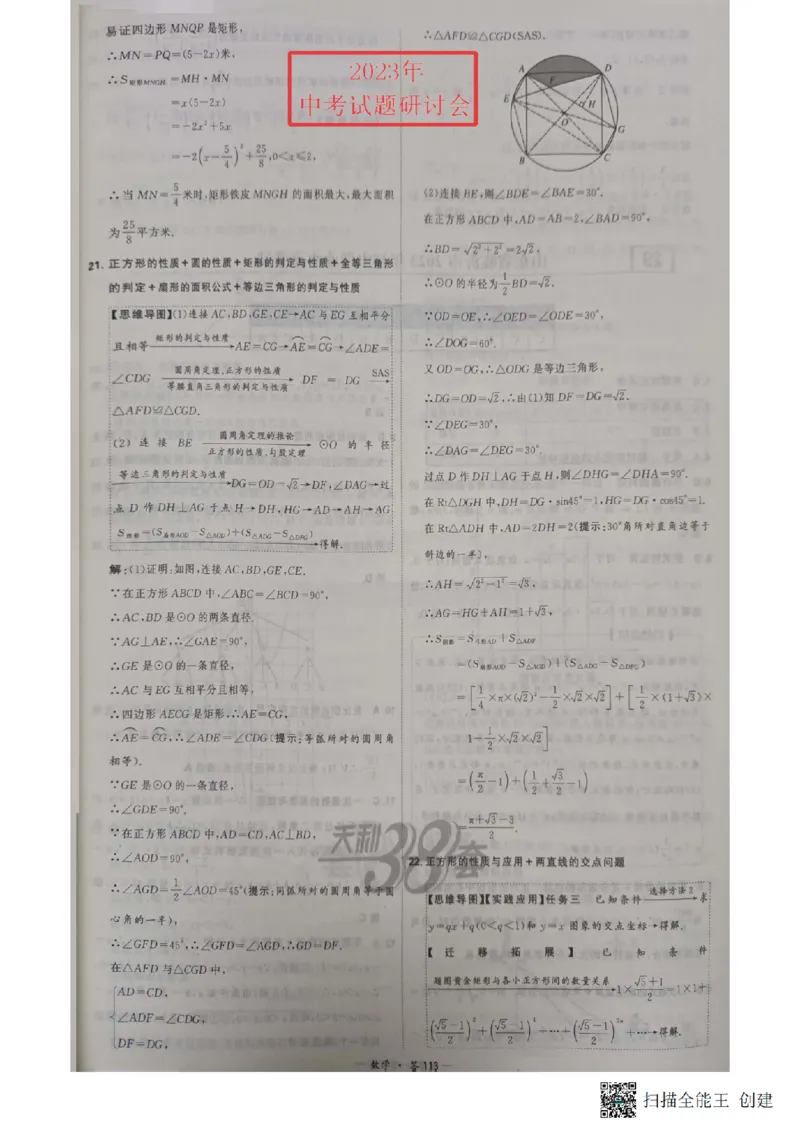 易证四边形 MNQP 是矩形,
∴MN=PQ=(5-2x)米,
∴S矩形MNGH =MH·MN
=x(5-2x)
=-2x²+5x
=-2(x-5/4)²+25/8,0<x≤2,
∴当 MN=5/4米时,矩形铁皮 MNGH 的面积最大,最大面积
为25/8平方米.
21. 正方形的性质+圆的性质+矩形的判定与性质+全等三角形
的判定+扇形的面积公式+等边三角形的判定与性质
【思维导图】(1)连接 AC,BD,GE,CE→AC 与 EG 互相平分
且相等 矩形的判定与性质→AE=CG→AE=CG→∠ADE=
∠CDG 圆周角定理,正方形的性质 等腰直角三角形的判定与性质→ DF = DG SAS→
△AFD≌△CGD.
(2) 连接 BE 圆周角定理的推论 正方形的性质,勾股定理→ ⊙O 的半径
等边三角形的判定与性质→DG=OD=√2→DF,∠DAG→过
点 D 作 DH⊥AG 于点 H→DH,HG→AD→AH→AG
S阴影=(S扇形AOD-S△AOD)+(S△ADG-S△DFG)→得解.
解:(1)证明:如图,连接 AC,BD,GE,CE.
∵在正方形 ABCD 中,∠ABC=∠BCD=90°,
∴AC,BD 是⊙O 的两条直径.
∵AG⊥AE,∴∠GAE=90°,
∴GE 是⊙O 的一条直径,
∴AC 与 EG 互相平分且相等,
∴四边形 AECG 是矩形,∴AE=CG,
∴AE=CG,∴∠ADE=∠CDG(提示:等弧所对的圆周角
相等).
∵GE 是⊙O 的一条直径,
∴∠GDE=90°.
∵在正方形 ABCD 中,AD=CD,AC⊥BD,
∴∠AOD=90°,
∴∠AGD=1/2∠AOD=45°(提示:同弧所对的圆周角等于圆
心角的一半),
∴∠GFD=45°,∴∠GFD=∠AGD,∴GD=DF.
在△AFD 与△CGD 中,
{AD=CD,
∠ADF=∠CDG,
DF=DG,
∴△AFD≌△CGD(SAS).
2023年
中考试题研讨会
A
D
F
E
H
O
G
B
C
(2)连接 BE,则∠BDE=∠BAE=30°.
在正方形 ABCD 中,AD=AB=2,∠BAD=90°,
∴BD=√2²+2²=2√2,
∴⊙O 的半径为1/2BD=√2.
∵OD=OE,∴∠OED=∠ODE=30°,
∴∠DOG=60°.
又 OD=OG,∴△ODG 是等边三角形,
∴DG=OD=√2,∴由(1)知 DF=DG=√2.
∵∠DEG=30°,
∴∠DAG=∠DEG=30°.
过点 D 作 DH⊥AG 于点 H,则∠DHG=∠DHA=90°.
在 Rt△DGH 中,DH=DG·sin45°=1,HG=DG·cos45°=1.
在 Rt△ADH 中,AD=2DH=2(提示:30°角所对直角边等于
斜边的一半),
∴AH=√2²-1²=√3,
∴AG=HG+AH=1+√3,
∴S阴影=S弓形AD+S△ADF
=(S扇形AOD-S△AOD)+(S△ADG-S△DFG)
=[1/4×π×(√2)²-1/2×√2×√2]+[1/2×(1+√3)×
1-1/2×√2×√2]
=(π/2-1)+(1/2+√3/2-1)
=π+√3-3/2.
天利38套
22. 正方形的性质与应用+两直线的交点问题
【思维导图】【实践应用】任务三 已知条件 选择方法2→求
y=qx+q(0<q<1)和 y=x 图象的交点坐标→得解.
【迁移拓展】 已知条件
题图黄金矩形与各小正方形间的数量关系→1×√5+1/2=1×1+
(√5-1/2)²+(√5-1/2)⁴+…+(√5-1/2)²ⁿ+…→得解.
数学·答 113
扫描全能王 创建